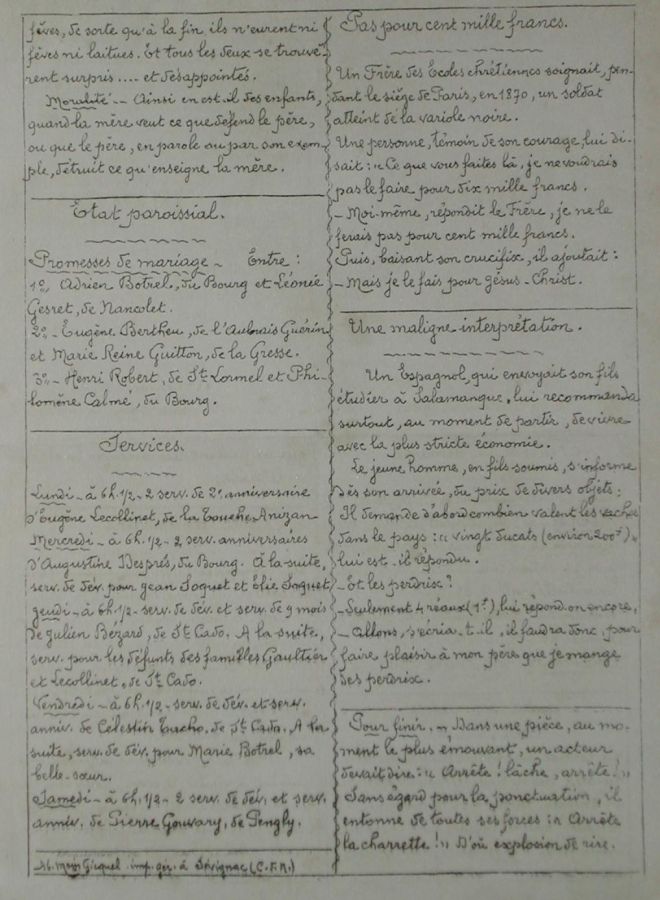 fèves, de sorte qu'à la fin, ils n'eurent ni
fèves ni laitues. Et tous les deux se trouvè-
rent surpris .... et désappointés.
Moralité -- Ainsi en est-il des enfants,
quand la mère veut ce que défend le père,
ou que le père, en parole ou par son exem-
ple, détruit ce qu'enseigne la mère.
Etat paroissial.
Promesses de mariage - Entre :
1º, Adrien Botrel, du Bourg et Léonie
Gesret, de Nancolet.
2º - Eugène Bertheu, de l'Aubnais Guérin
et Marie Reine Guitton, de la Gresse.
3º - Henri Robert, de St Lormel et Phi-
lomène Calmé, du Bourg.
Services.
Lundi - à 6h.1/2 - 2 serv. de 2e anniversaire
d'Eugène Lecollinet, de la Touche Anizan
Mercredi - à 6h.1/2 - 2 serv. anniversaires
d'Augustine Després, du Bourg. A la suite,
serv. de dév. pour Jean Soquet et Elie Soquet
Jeudi - à 6h.1/2 - serv. de dév. et serv. de 9 mois
de Julien Bézard, de St Cado. A la suite,
serv. pour les défunts des familles Gaultier
et Lecollinet, de St Cado.
Vendredi - à 6h.1/2 - serv. de dév. et serv.
anniv. de Célestin Tucho, de St Cado. A la
suite, serv. de dév. pour Marie Botrel, sa
belle-sœur.
Samedi - à 6h.1/2 - 2 serv. de dév. et serv.
anniv. de Pierre Gouvary, de Pengly.
Gicquel imp. gér. à Sévignac (C.F.N.)
Pas pour cent mille francs.
Un Frère des Écoles chrétiennes soignait, pen-
dant le siège de Paris, en 1870, un soldat
atteint de la variole noire.
Une personne, témoin de son courage, lui di-
sait : « Ce que vous faites là, je ne voudrais
pas le faire pour dix mille francs.
- Moi-même, répondit le Frère, je ne le
ferais pas pour cent mille francs.
Puis, baisant son crucifix, il ajoutait :
- Mais je le fais pour Jésus-Christ.
Une maligne interprétation.
Un Espagnol, qui envoyait son fils
étudier à Salamanque, lui recommanda
surtout, au moment de partir, de vivre
avec la plus stricte économie.
Le jeune homme, en fils soumis, s'informe
dès son arrivée, du prix de divers objets :
Il demande d'abord combien valent les vaches
dans le pays : « vingt ducats (environ 200f) »
lui est-il répondu.
- Et les perdrix ?
- Seulement 4 réaux (1f), lui répond-on encore,
- Allons, s'écria-t-il, il faudra donc, pour
faire plaisir à mon père que je mange
des perdrix.
Pour finir. - Dans une pièce, au mo-
ment le plus émouvant, un acteur
devait dire : « Arrête ! lâche, arrête ! »
Sans égard pour la ponctuation, il
entonne de toutes ses forces : « Arrête
la charrette ! » D'où explosion de rire.